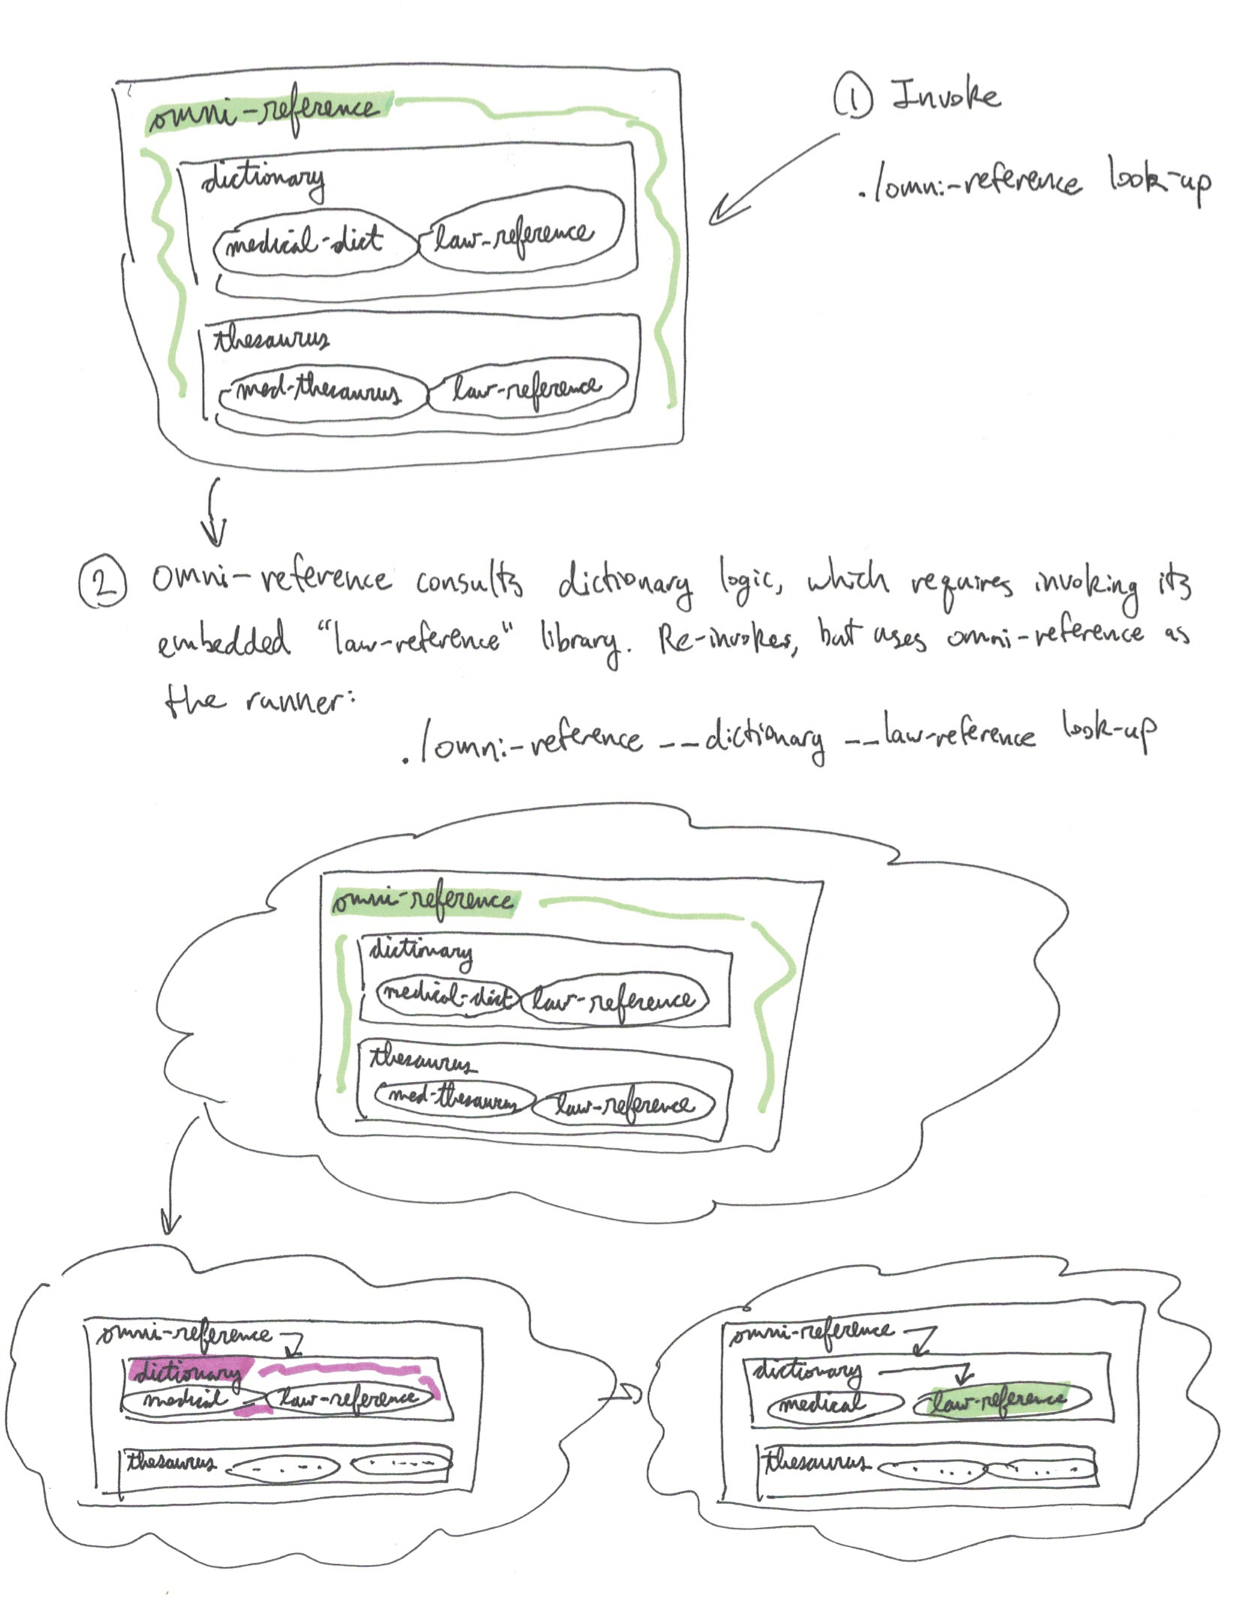 omni-reference
① Invoke
./omni-reference look-up
dictionary
medical-dict law-reference
thesaurus
med-thesaurus law-reference
② omni-reference consults dictionary logic, which requires invoking its
embedded "law-reference" library. Re-invokes, but uses omni-reference as
the runner:
./omni-reference --dictionary --law-reference look-up
omni-reference
dictionary
medical-dict law-reference
thesaurus
med-thesaurus law-reference
omni-reference
dictionary
medical law-reference
thesaurus
omni-reference
dictionary
medical law-reference
thesaurus